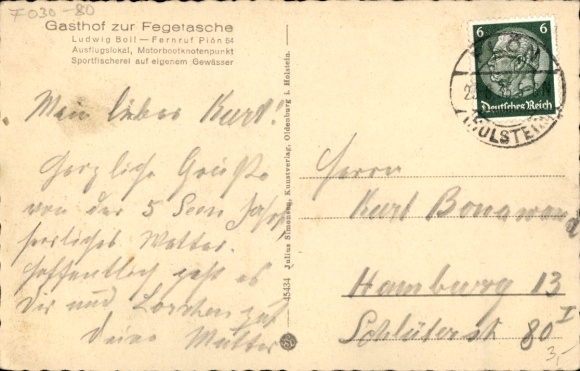 F030-80
Gasthof zur Fegetasche
Ludwig Boll — Fernruf Plön 54
Ausflugslokal, Motorbootknotenpunkt
Sportfischerei auf eigenem Gewässer
Mein lieber Kurt!
Herzliche Grüße
von der 5 Seen Fahrt
herrliches Wetter.
Hoffentlich geht es
Dir und Lorchen gut
Deine Mutter
45434 Julius Simonsen, Kunstverlag, Oldenburg i. Holstein.
6 6
Deutsches Reich
PLÖN
(HOLSTEIN)
Herrn
Kurt
Hamburg 13
Schlüterstr 80 I
3,-